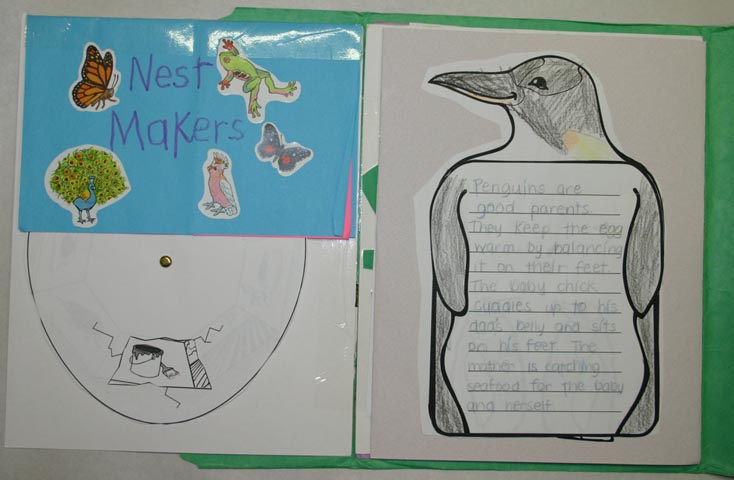 Penguins are
good parents
They keep the egg
warm by balancing
it on their feet
The baby chick
cuddles up to his
dad's belly and sits
on his feet The
mother is catching
seafood for the baby
and herself
Nest
Makers